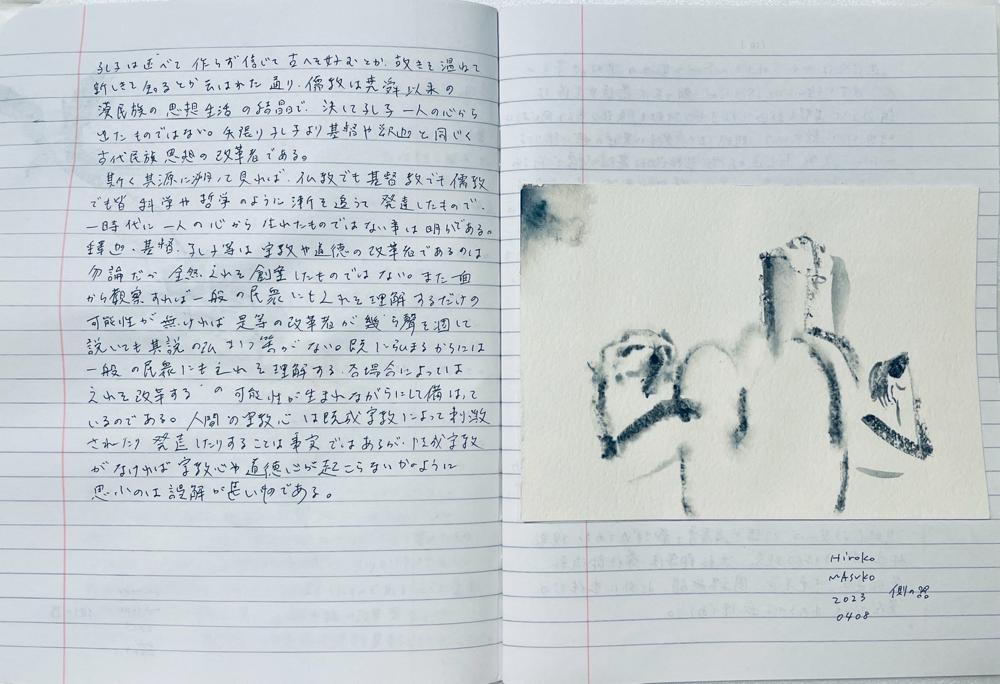 孔子は述べて作らず信じて古へを好むとか、故きを温ねて
新しきを知るとか云はれた通り、儒教は堯舜以来の
漢民族の思想生活の結晶で、決して孔子一人の心から
出たものではない。矢張り孔子より基督や釈迦と同じく
古代民族思想の改革者である。
斯く其源に溯って見れば、仏教でも基督教でも儒教
でも皆科学や哲学のように漸を追うて発達したもので、
一時代に一人の心から生れたものではない事は明かである。
釋迦、基督、孔子等は宗教や道徳の改革者であるのは
勿論だが全然之れを創立したものではない。また一面
から觀察すれば一般の民衆にも之れを理解するだけの
可能性が無ければ是等の改革者が幾ら聲を涸して
説いても其説の弘まつ筈がない。既に弘まるからには
一般の民衆にも之れを理解する、否場合によっては
之れを改革する の可能性が生まれながらにして備はって
いるのである。人間の宗教心は既成宗教によって刺激
されたり発達したりすることは事実ではあるが、既成宗教
がなければ宗教心や道徳心が起こらないかのように
思ふのは誤解が甚しいのである。
Hiroko
MAsuko
2023 側の器
0408